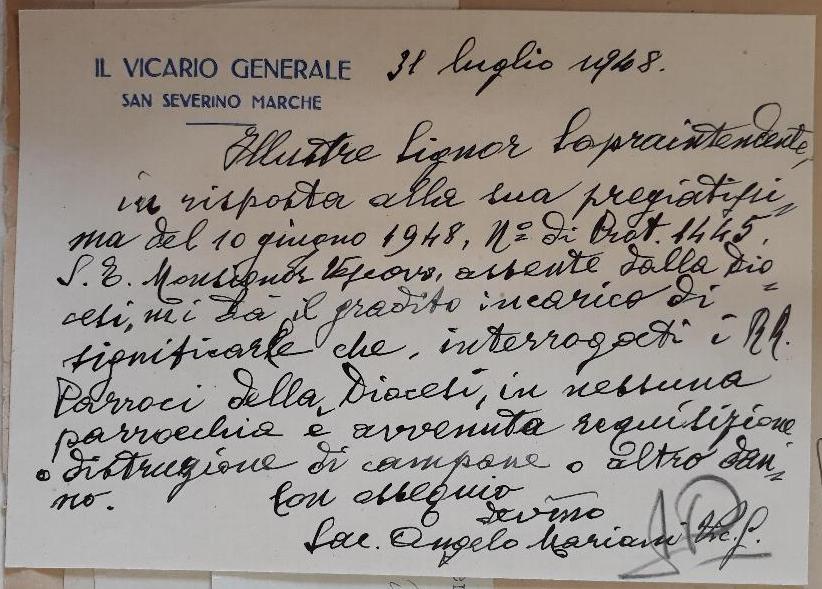 IL VICARIO GENERALE
SAN SEVERINO MARCHE
31 luglio 1948.
Illustre Signor Sopraintendente,
in risposta alla sua pregiatissi=
ma del 10 giugno 1948, Nº di Prot. 1445,
S. E. Monsignor Vescovo, assente dalla Dio=
cesi, mi dà il gradito incarico di
significarle che, interrogati i RR.
Parroci della Diocesi, in nessuna
parrocchia è avvenuta requisizione
o distruzione di campane o altro dan=
no. Con ossequio
dev.mo
Sac. Angelo Mariani Vic. G.